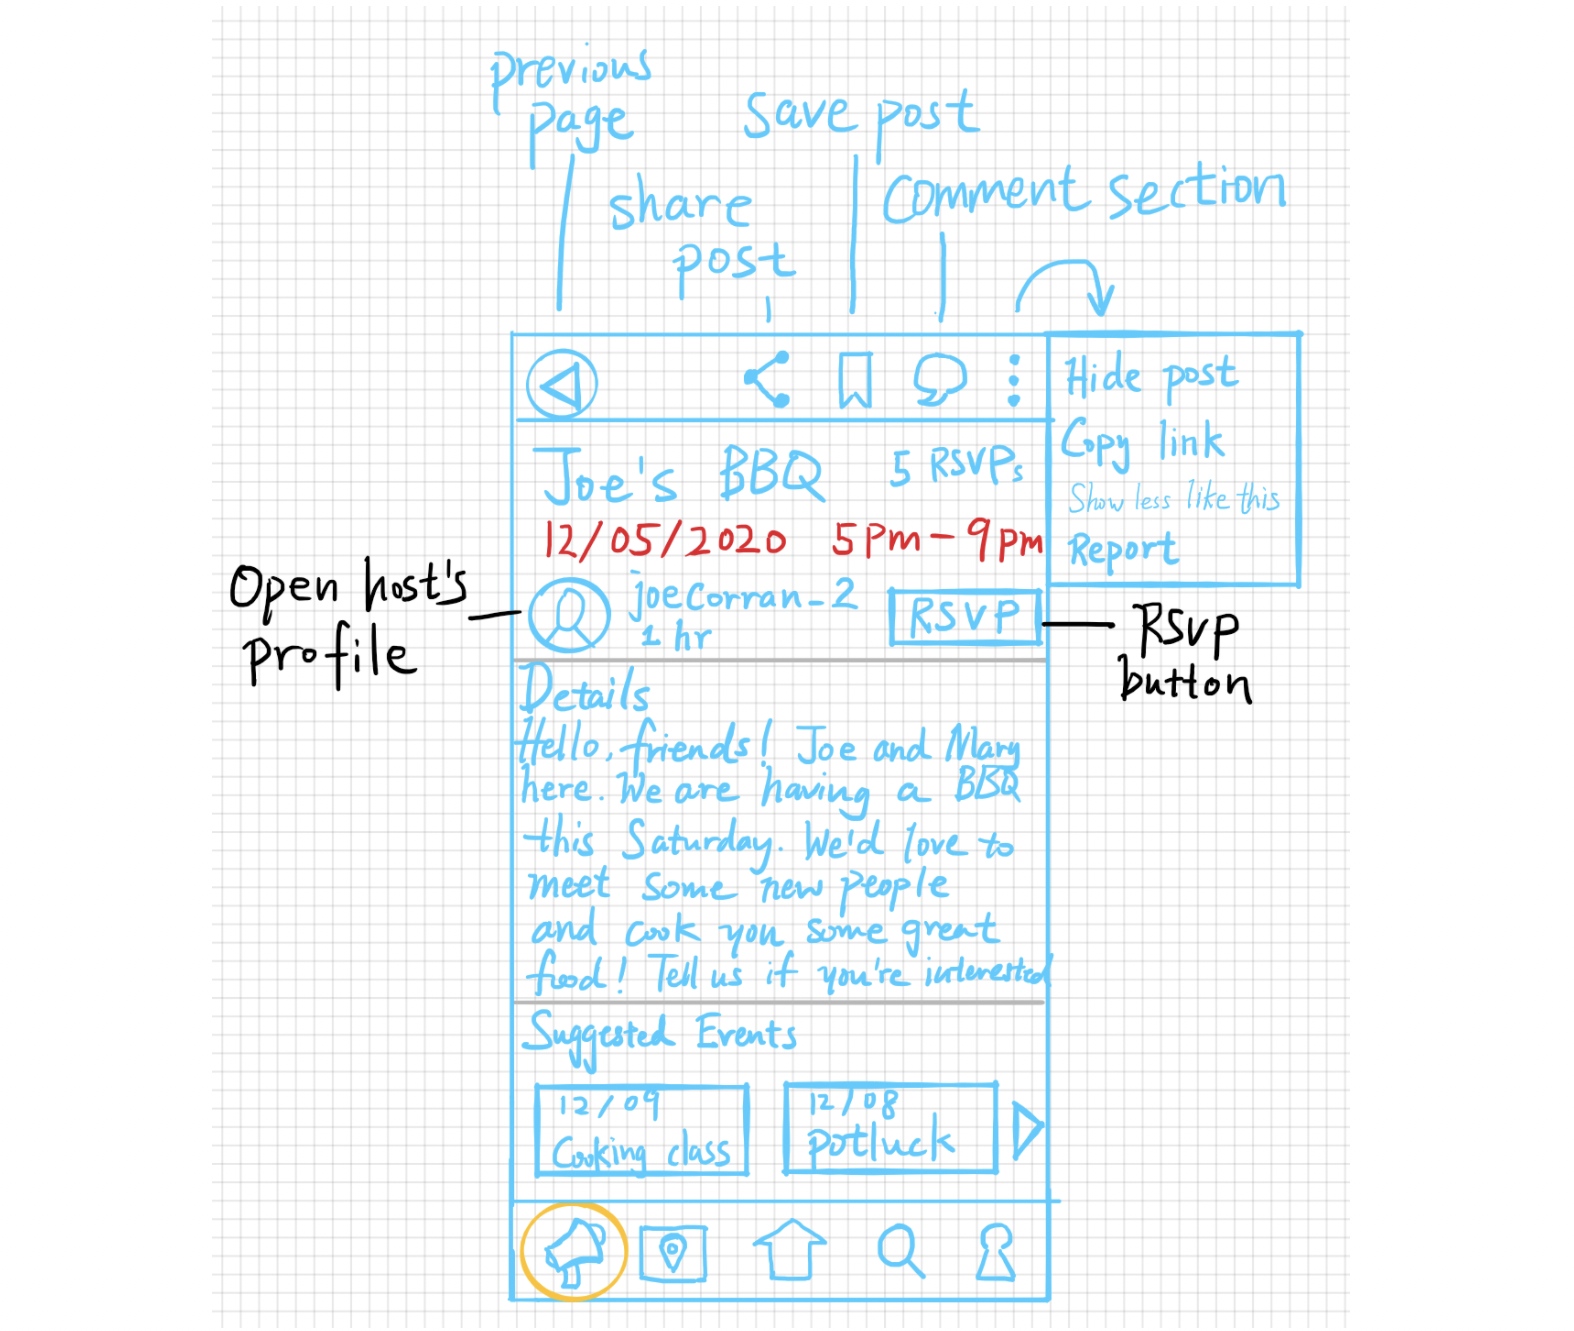 previous
page
save post
share
post
comment section
Hide post
Copy link
Show less like this
Report
Joe's BBQ 5 RSVPs
12/05/2020 5pm-9pm
Open host's
profile
joecorran_2
1 hr
RSVP
RSVP
button
Details
Hello, friends! Joe and Mary
here. We are having a BBQ
this Saturday. We'd love to
meet some new people
and cook you some great
food! Tell us if you're interested
Suggested Events
12/09
Cooking class
12/08
Potluck